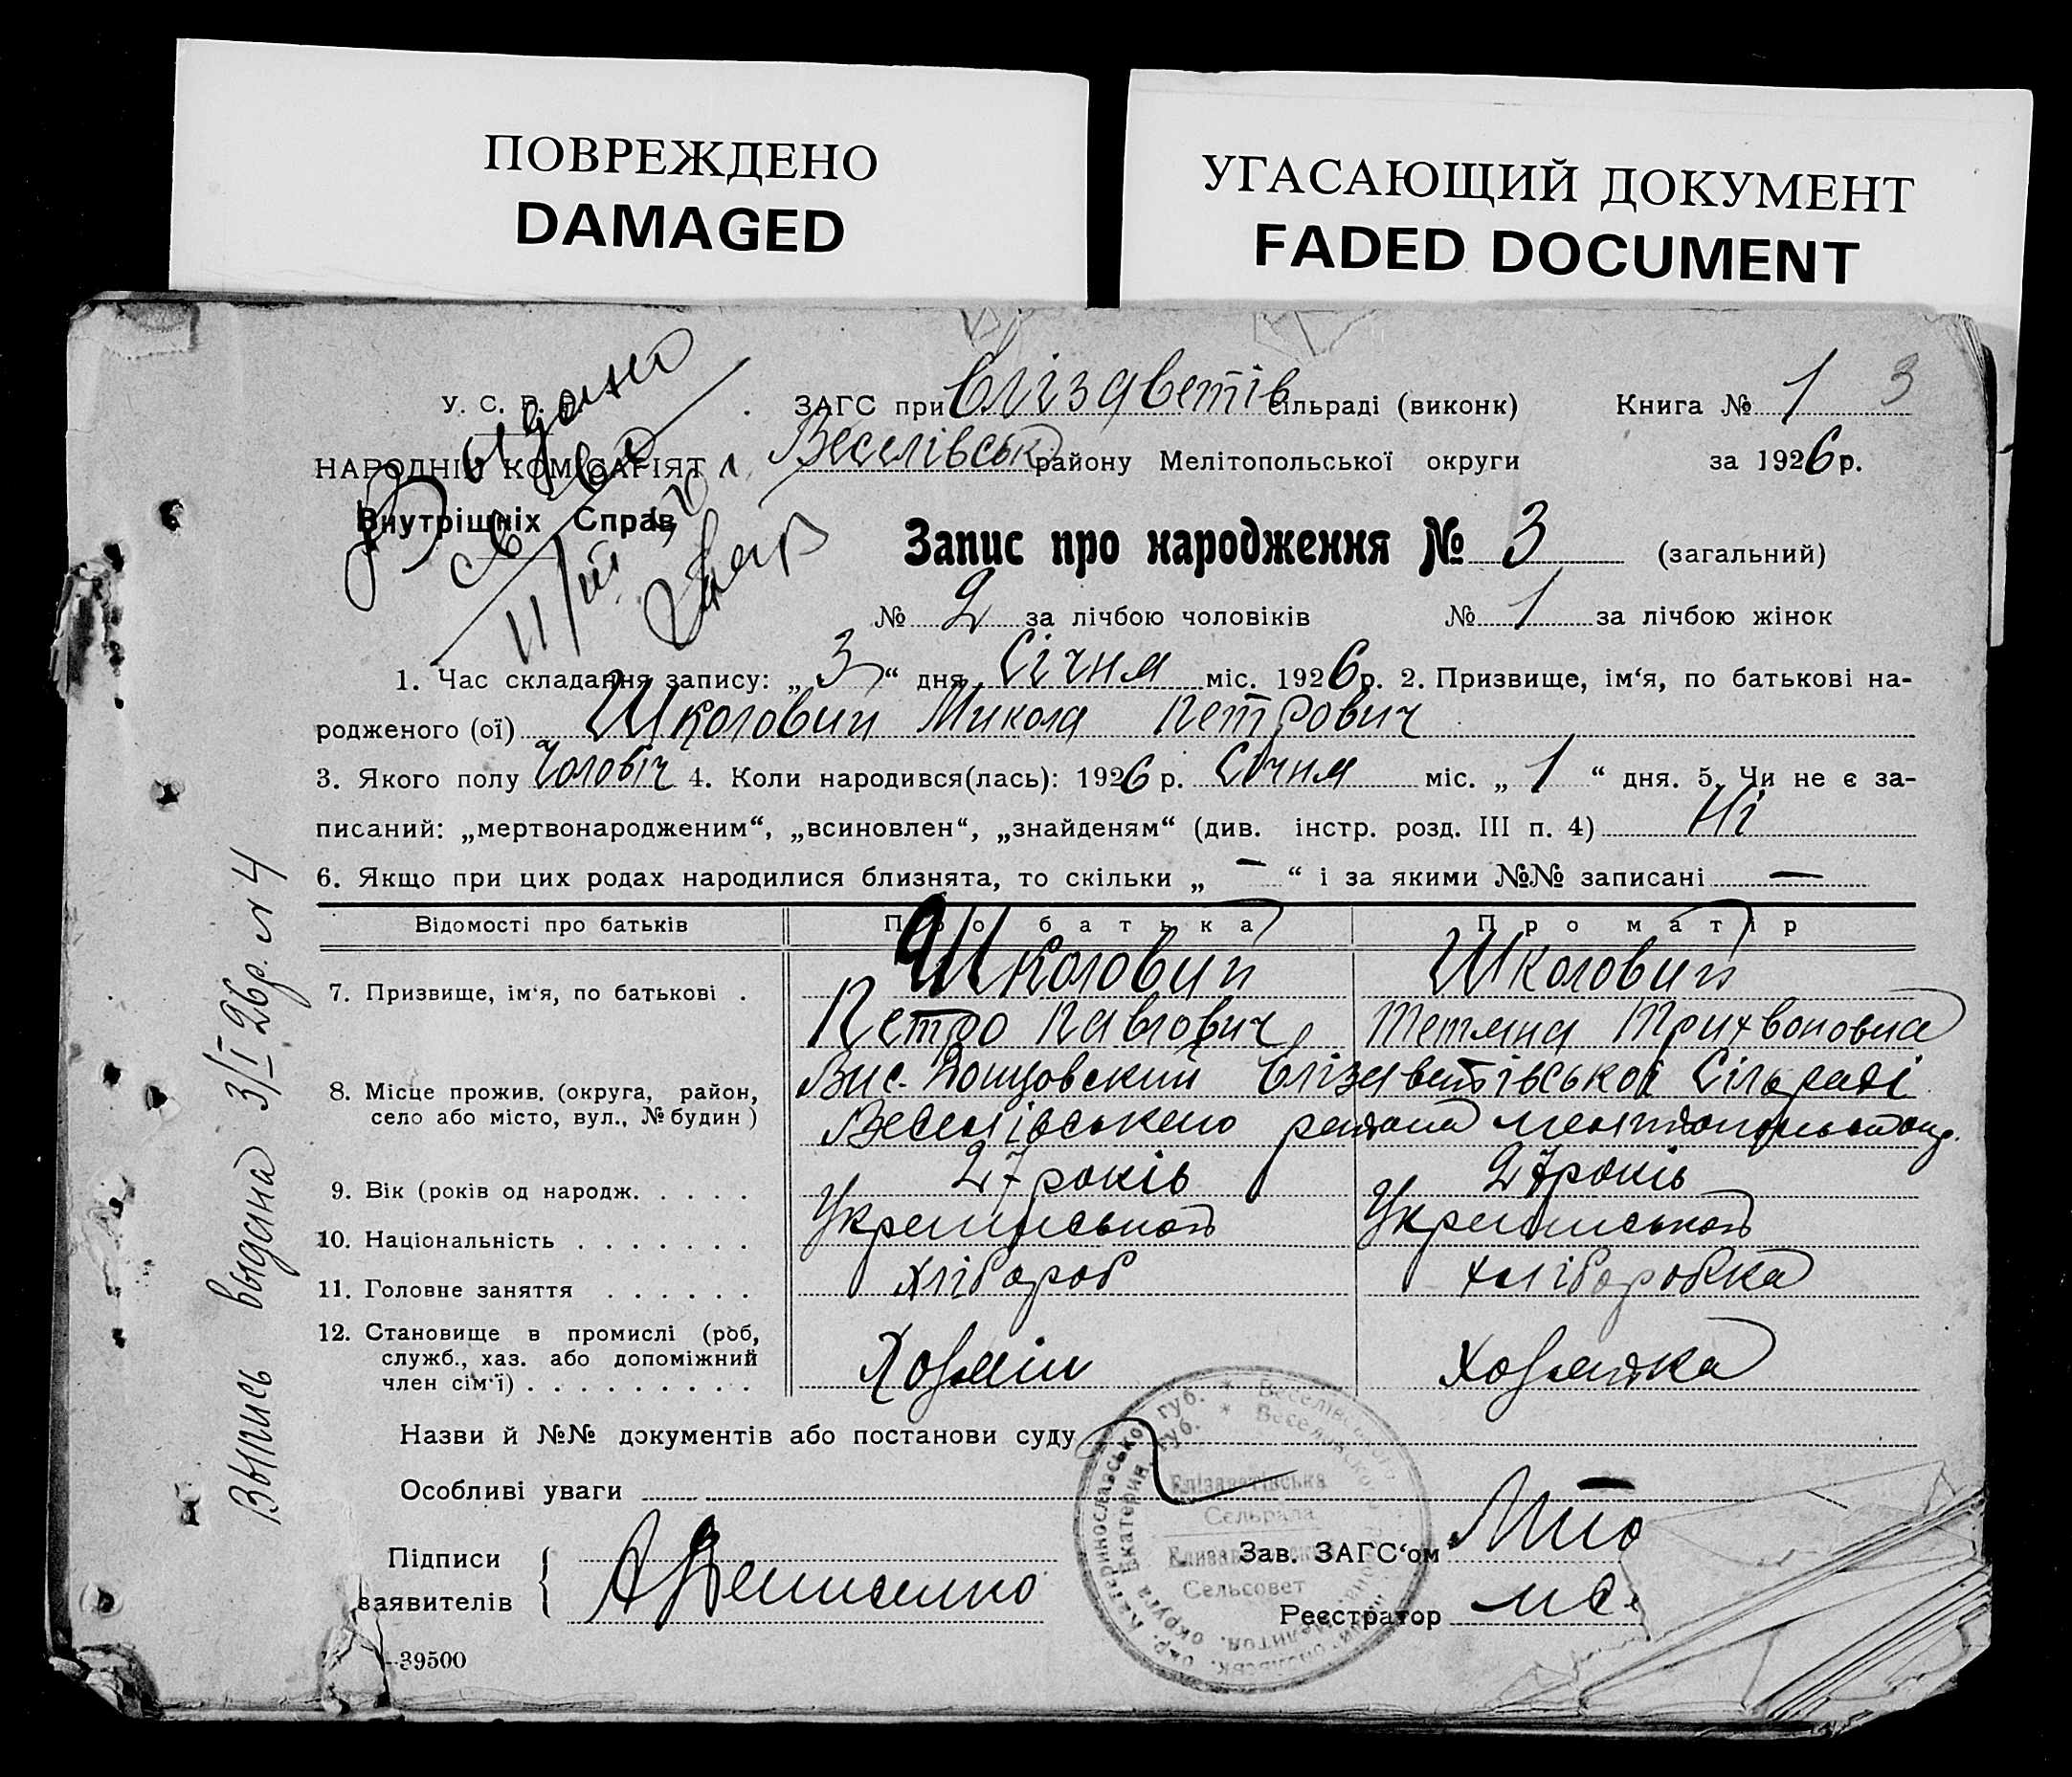 ПОВРЕЖДЕНО
DAMAGED
УГАСАЮЩИЙ ДОКУМЕНТ
FADED DOCUMENT
У. С. Р. Р. ЗАГС при Єлізаветів сільраді (виконк) Книга № 1 3
НАРОДНІЙ КОМІСАРІЯТ Веселівськ району Мелітопольської округи за 1926 р.
Внутрішніх Справ
Видано
11/III
Запис про народження № 3 (загальний)
№ 2 за лічбою чоловіків № 1 за лічбою жінок
1. Час складання запису: „3“ дня Січня міс. 1926 р. 2. Призвище, ім‘я, по батькові на-
родженого (ої) Школовий Микола Петрович
3. Якого полу Чоловіч 4. Коли народився(лась): 1926 р. Січня міс. „1“ дня. 5. Чи не є за-
писаний: „мертвонародженим“, „всиновлен“, „знайденям“ (див. інстр. розд. III п. 4) Ні
6. Якщо при цих родах народилися близнята, то скільки „–“ і за якими №№ записані —
Відомості про батьків Про батька Про матір
7. Призвище, ім‘я, по батькові . Школовий Школовий
Петро Павлович Тетяна Трихвоновна
8. Місце прожив. (округа, район, село або місто, вул., № будин) Вис. Єлізаветівської Сільраді
Веселівського района
9. Вік (років од народж. . . . . 27 років 27 років
10. Національність . . . . . . . Української Української
11. Головне заняття . . . . . . Хлібороб Хліборобка
12. Становище в промислі (роб,
служб., хаз. або допоміжний
член сім‘ї) . . . . . . . . . Хозяїн Хозяйка
Назви й №№ документів або постанови суду
Особливі уваги
Підписи
заявителів
Зав. ЗАГС‘ом
Реєстратор
39500
Выпись выдана 3/I 26р. № 4
Єлізаветівська
Сельрада
Елизаветовский
Сельсовет